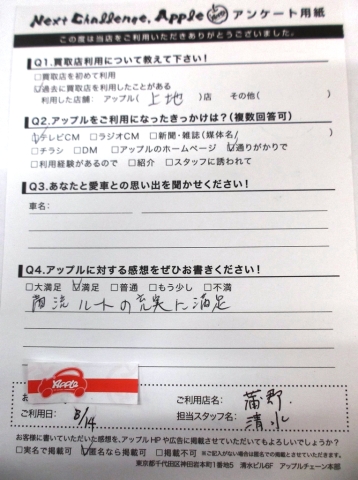 Next Challenge. Apple アンケート用紙
この度は当店をご利用いただきありがとうございました。
Q1.買取店利用について教えて下さい!
□買取店を初めて利用
☑過去に買取店を利用したことがある
利用した店舗: アップル( 上地 )店 その他( )
Q2.アップルをご利用になったきっかけは?(複数回答可)
☑テレビCM □ラジオCM □新聞・雑誌(媒体名 )
□チラシ □DM □アップルのホームページ ☑通りがかりで
□利用経験があるので □紹介 □スタッフに誘われて
Q3.あなたと愛車との思い出を聞かせください!
車名:
Q4.アップルに対する感想をぜひお書きください!
□大満足 ☑満足 □普通 □もう少し □不満
流ルートの充実に満足
Apple
お
ご利用店名: 蒲郡
ご利用日: 8/14
担当スタッフ名: 清水
お客様に書いていただいた感想を、アップルHPや広告に掲載させていただいてもよろしいでしょうか?
□実名で掲載可 ☑匿名なら掲載可 □掲載不可 ※ご記入がない場合は匿名での掲載とさせていただきます。
東京都千代田区神田岩本町1番地5 清水ビル6F アップルチェーン本部